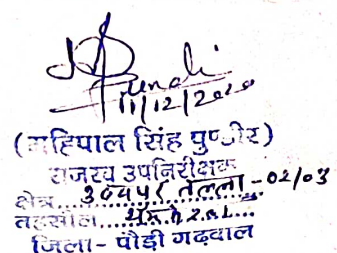 11/12/2020
(महिपाल सिंह पुण्डीर)
राजस्व उपनिरीक्षक
क्षेत्र उदयपुर तल्ला-02/03
तहसील
जिला- पौड़ी गढ़वाल